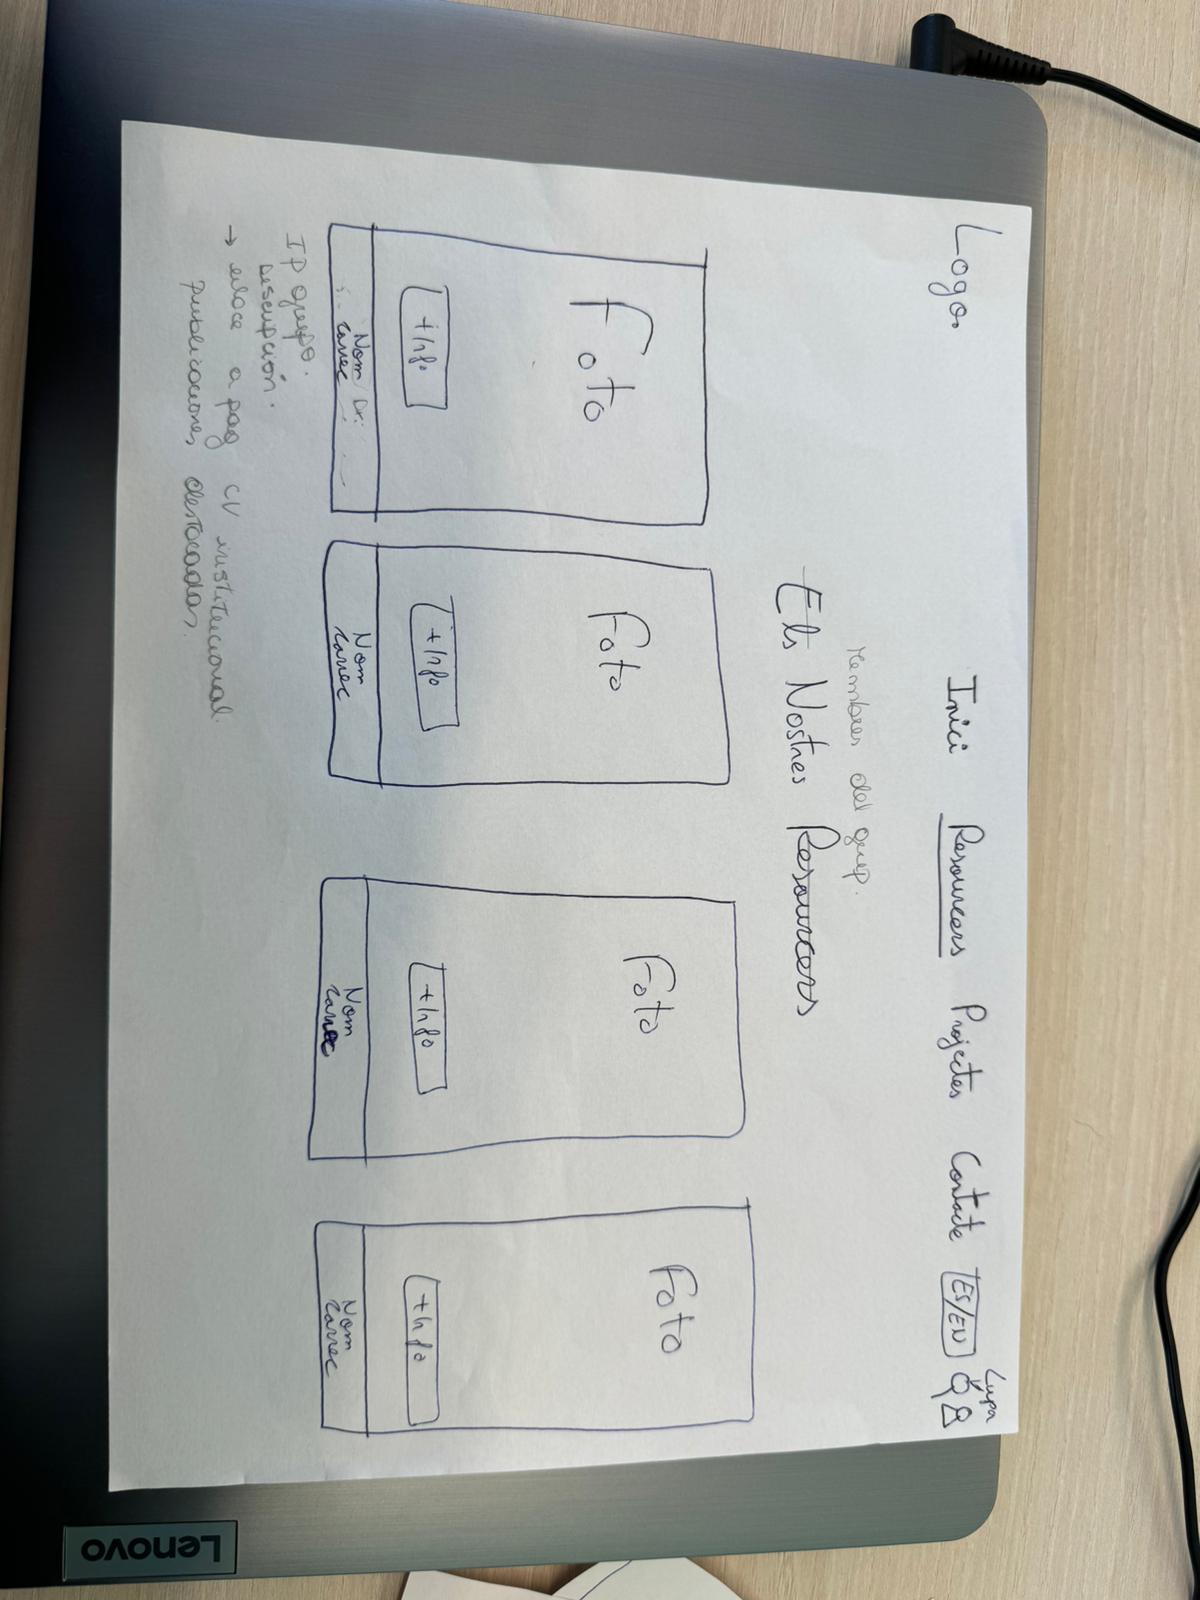 Logo.
Inici Resourcers Projectes Contacte ES/EN
Lupa
Membres del grup.
Els Nostres Resourcers
Foto Foto Foto Foto
+Info +Info +Info +Info
Nom Dr. Nom Nom Nom
Carrec Carrec Carrec Carrec
IP grupo.
Descripción.
→ enlace a pag CV institucional.
publicaciones destacadas.
Lenovo